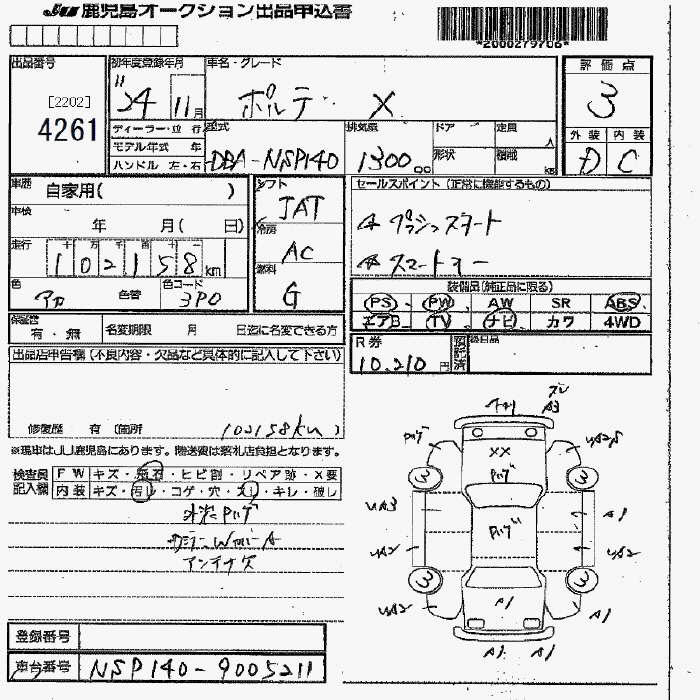 JU 鹿児島オークション出品申込書
*2000279706*
出品番号
[2202]
4261
初年度登録年月
24 11月
車名・グレード
ポルテ X
評価点
3
外装 内装
D C
ディーラー・並行
モデル年式 年
ハンドル 左・右
型式
DBA-NSP140
排気量
1300 cc
ドア
形状
定員 人
積載 kg
車歴
自家用( )
車検
年 月( 日)
走行
十 万 千 百 十 一
102158 km
色
アカ
色替
色コード
3P0
シフト
IAT
冷房
AC
燃料
G
セールスポイント (正常に機能するもの)
☆プッシュスタート
☆スマートキー
装備品(純正品に限る)
PS PW AW SR ABS
エアB TV ナビ カワ 4WD
保証書
有・無
名変期限 月 日迄に名変できる方
R券
10,210円
預託済
後日品
出品店申告欄(不良内容・欠品など具体的に記入して下さい)
修復歴 有 (箇所 )
102158km
※現車はJU鹿児島にあります。陸送費は落札店負担となります。
検査員
記入欄
FW キズ・飛石・ヒビ割・リペア跡・X要
内装 キズ・汚レ・コゲ・穴・スレ・キレ・破レ
外装ハゲ
アンテナ欠
ズレ
A3
ハゲ
XX
ハゲ
UA3
ハゲ
A1
UA2
UA2
UA2
3
3
3
3
A1
A1
A1
A1
登録番号
車台番号 NSP140-9005211